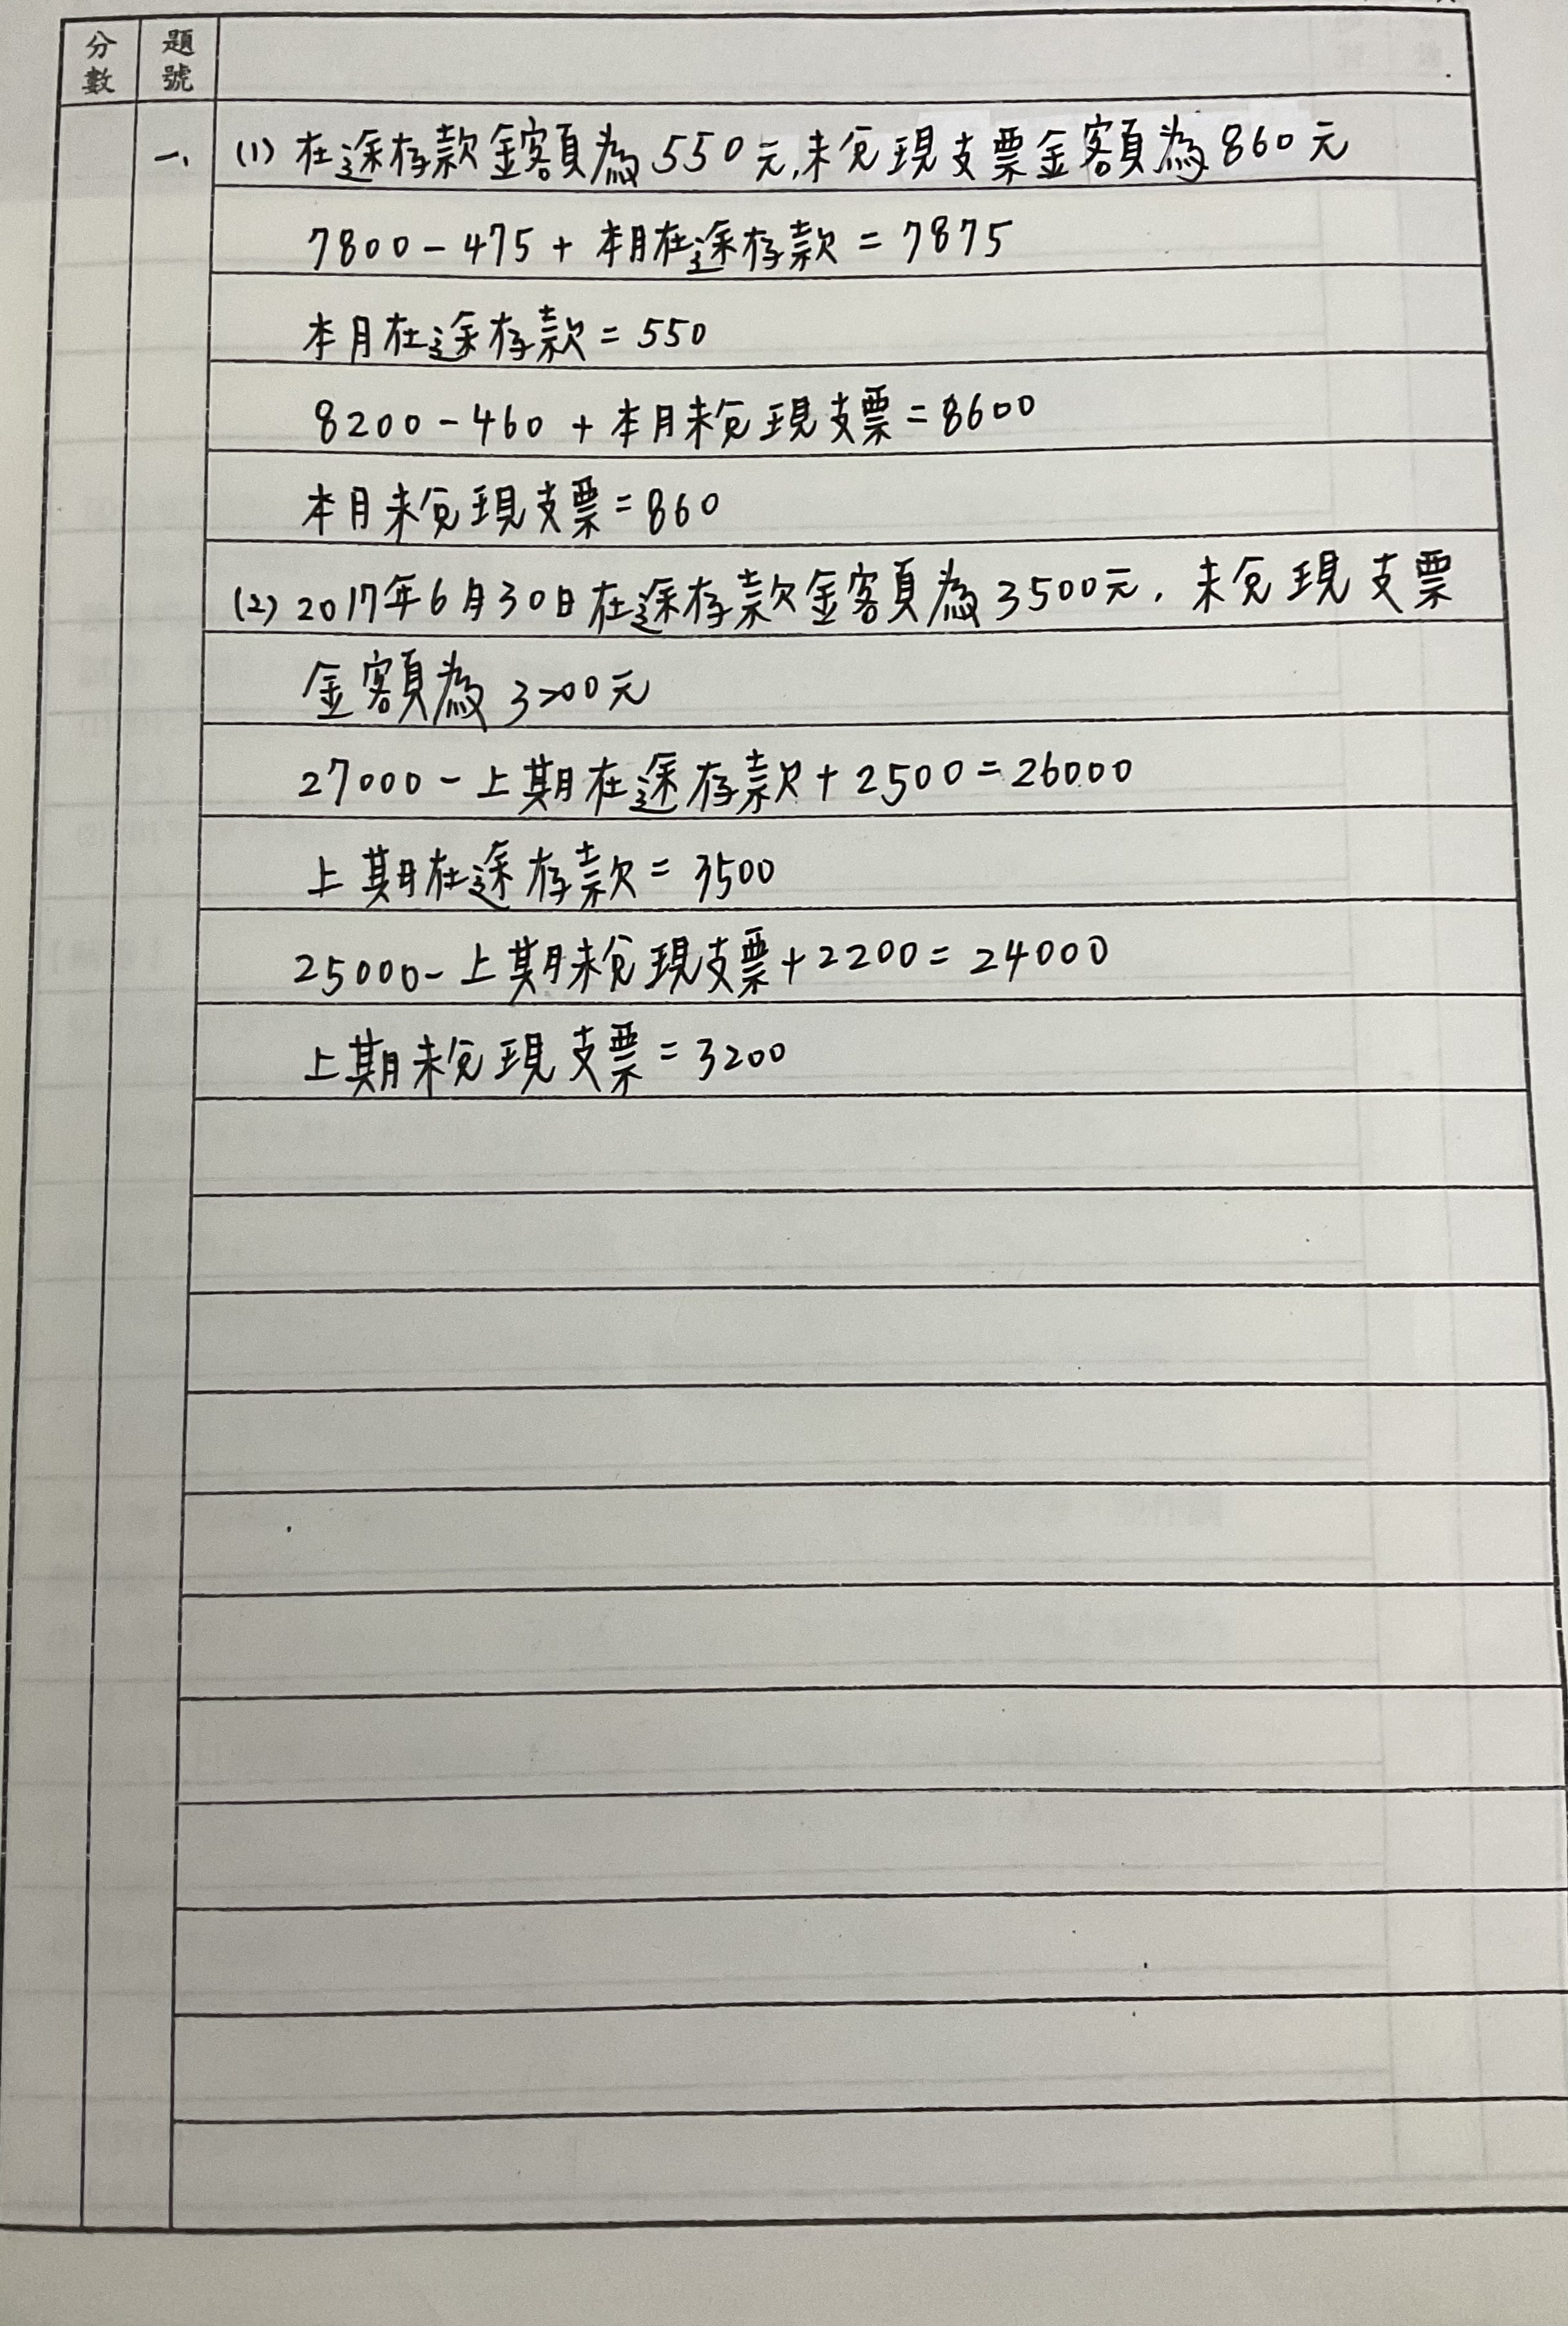 分數 題號
一、(1) 在途存款金額為550元,未兌現支票金額為860元
7800-475+本月在途存款=7875
本月在途存款=550
8200-460+本月未兌現支票=8600
本月未兌現支票=860
(2) 2017年6月30日在途存款金額為3500元,未兌現支票
金額為3200元
27000-上期在途存款+2500=26000
上期在途存款=3500
25000-上期未兌現支票+2200=24000
上期未兌現支票=3200